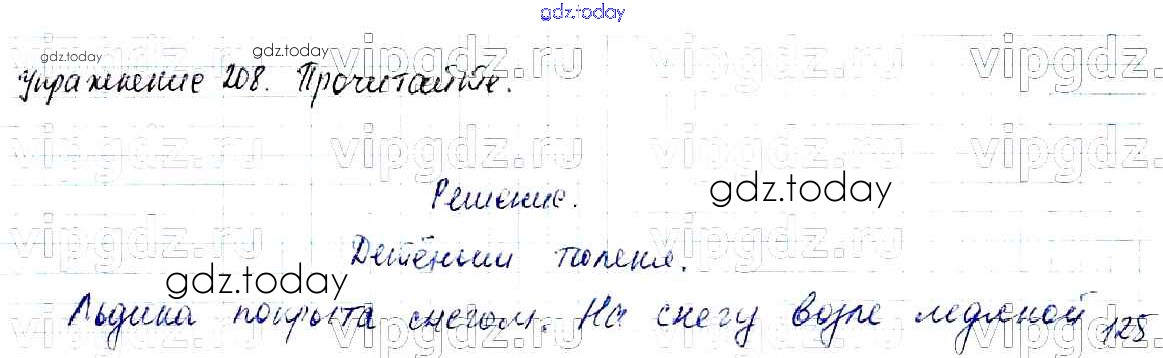 gdz.today
gdz.today
gdz.today
vipgdz.ru vipgdz.ru vipgdz.ru vipgdz
Упражнение 208. Прочитайте.
vipgdz.ru vipgdz.ru vipgdz.ru vipgdz
Решение.
gdz.today
vipgdz.ru vipgdz.ru vipgdz.ru vipgdz
Детёныш тюленя.
gdz.today
Льдина покрыта снегом. На снегу возле ледяной
125
vipgdz.ru vipgdz.ru vipgdz.ru vipgdz